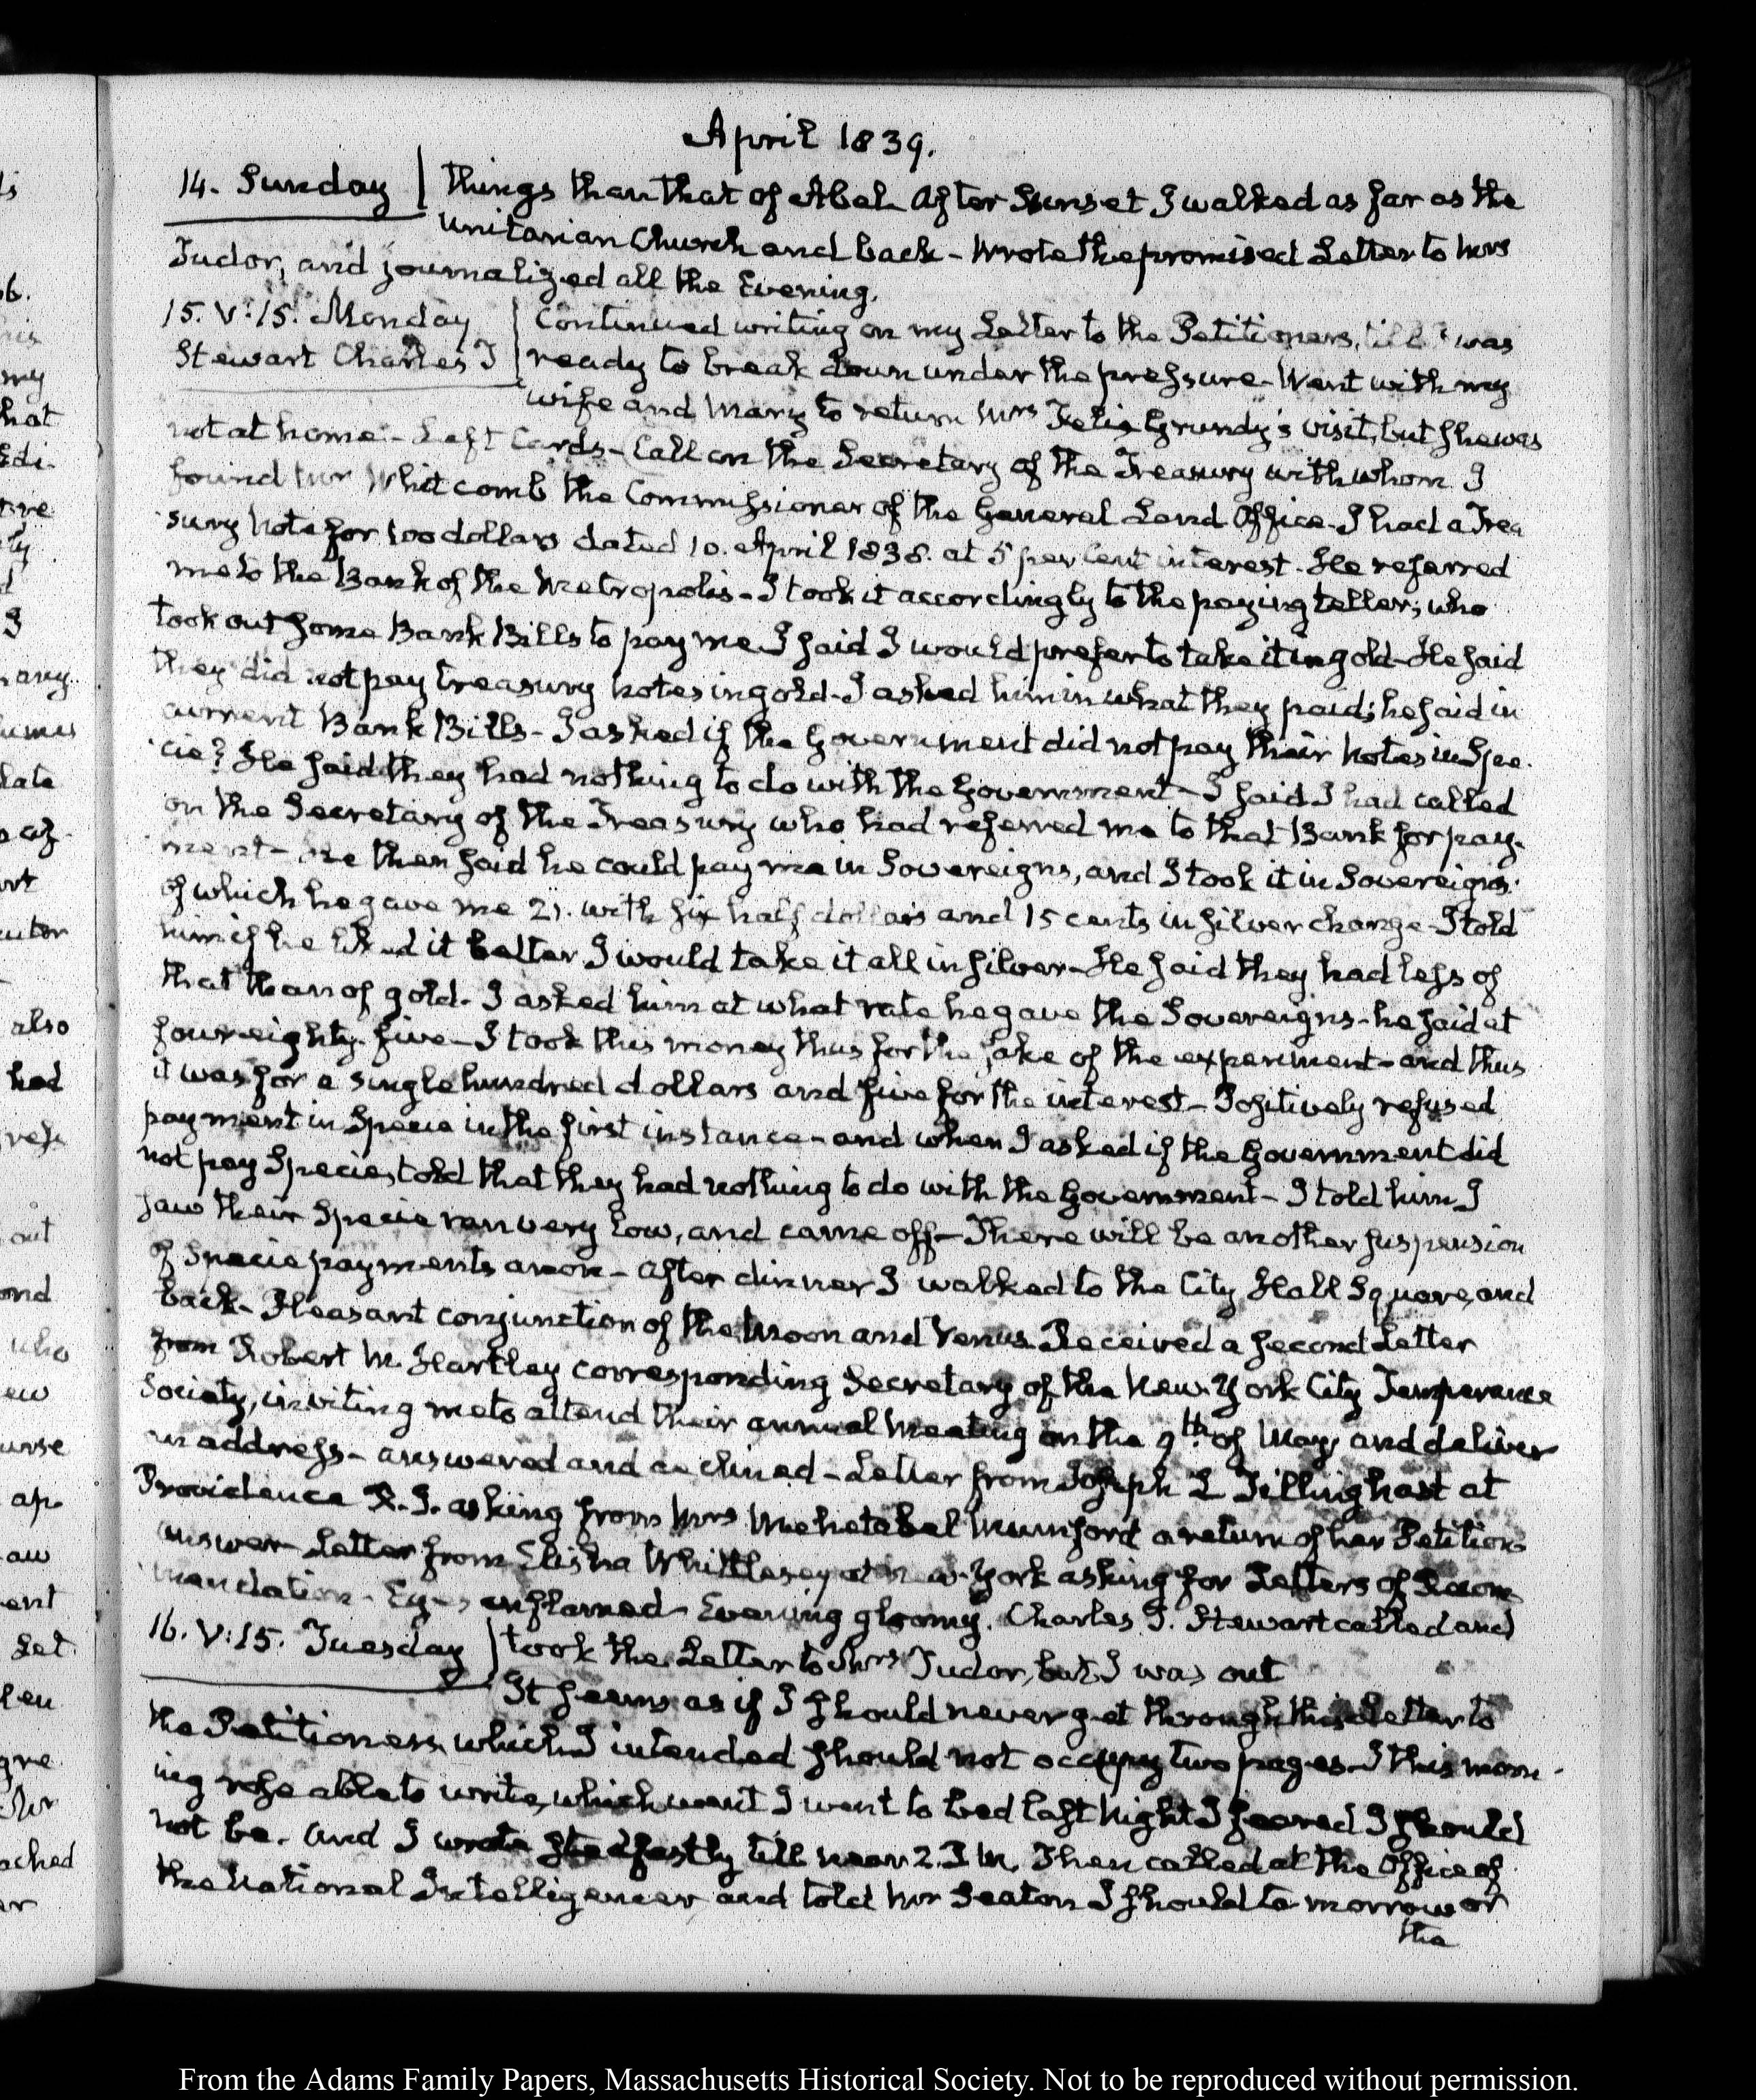 April 1839.
14. Sunday things than that of Abel. After Sunset I walked as far as the
Unitarian Church and back - Wrote the promised Letter to Mrs
Tudor, and journalized all the Evening.
15. V:15. Monday Continued writing on my Letter to the Petitioners, till I was
Stewart Charles T ready to break down under the pressure - Went with my
wife and Mary to return Mrs Felix Grundy's visit, but she was
not at home - Left Cards - Call on the Secretary of the Treasury with whom I
found Mr Whitcomb the Commissioner of the General Land Office - I had a Trea
sury Note for 100 dollars dated 10. April 1838. at 5 per Cent interest - He referred
me to the Bank of the Metropolis - I took it accordingly to the paying teller; who
took out some Bank Bills to pay me I said I would prefer to take it in gold - He said
they did not pay treasury notes in gold - I asked him in what they paid; he said in
current Bank Bills - I asked if the Government did not pay their Notes in Spe-
cie? He said they had nothing to do with the Government - I said I had called
on the Secretary of the Treasury who had referred me to that Bank for pay-
ment - He then said he could pay me in Sovereigns, and I took it in Sovereigns.
of which he gave me 21. with six half dollars and 15 cents in silver change - I told
him if he liked it better I would take it all in silver - He said they had less of
that than of gold. I asked him at what rate he gave the Sovereigns - he said at
four eighty-five - I took this money thus for the sake of the experiment - and thus
it was for a single hundred dollars and five for the interest - Positively refused
payment in Specie in the first instance - and when I asked if the Government did
not pay Specie, told that they had nothing to do with the Government - I told him I
saw their Specie ran very low, and came off - There will be another suspension
of Specie payments anon - After dinner I walked to the City Hall Square, and
back - Pleasant conjunction of the Moon and Venus. Received a second Letter
from Robert M. Hartley corresponding Secretary of the New-York City Temperance
Society, inviting me to attend their annual Meeting on the 9th of May, and deliver
an address - answered and declined - Letter from Joseph L Tillinghast at
Providence R.I. asking from Mrs Mehetabel Mumford a return of her Petition
answer - Letter from Elisha Whittlesey at New-York asking for Letters of Recom-
mendation - Eyes enflamed - Evening gloomy. Charles T. Stewart called and
16. V:15. Tuesday took the Letter to Mrs Tudor, but I was out
It seems as if I should never get through this Letter to
the Petitioners, which I intended should not occupy two pages - I this morn-
ing rose able to write, which when I went to bed last Night I feared I should
not be. And I wrote stedfastly till near 2. P.M. Then called at the Office of
the National Intelligencer and told Mr Seaton I should to-morrow or
the
From the Adams Family Papers, Massachusetts Historical Society. Not to be reproduced without permission.